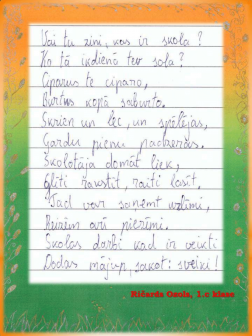 Vai tu zini, kas ir skola?
Ko tā ikdienā tev sola?
Ciparus te ciparo,
Burtus kopā saburto.
Skrien un lec, un spēlējas,
Gardu pienu padzeras.
Skolotāja domāt liek,
Glīti rakstīt, raiti lasīt.
Tad var saņemt uzlīmi,
Burtiem arī pierīmi.
Skolas darbi kad ir veikti
Dodas mājup, sakot: sveiki!
Ričards Ozols, 1.c klase